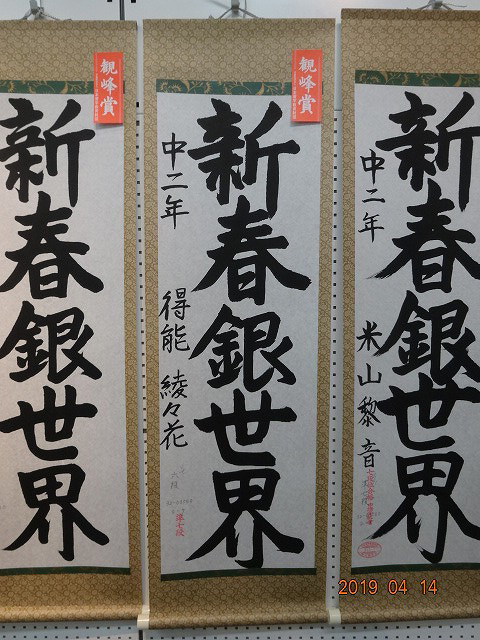 新春銀世界
中二年 米山黎音
観峰賞
新春銀世界
中二年 得能 綾々花
六段
準七段
観峰賞
新春銀世界
2019 04 14